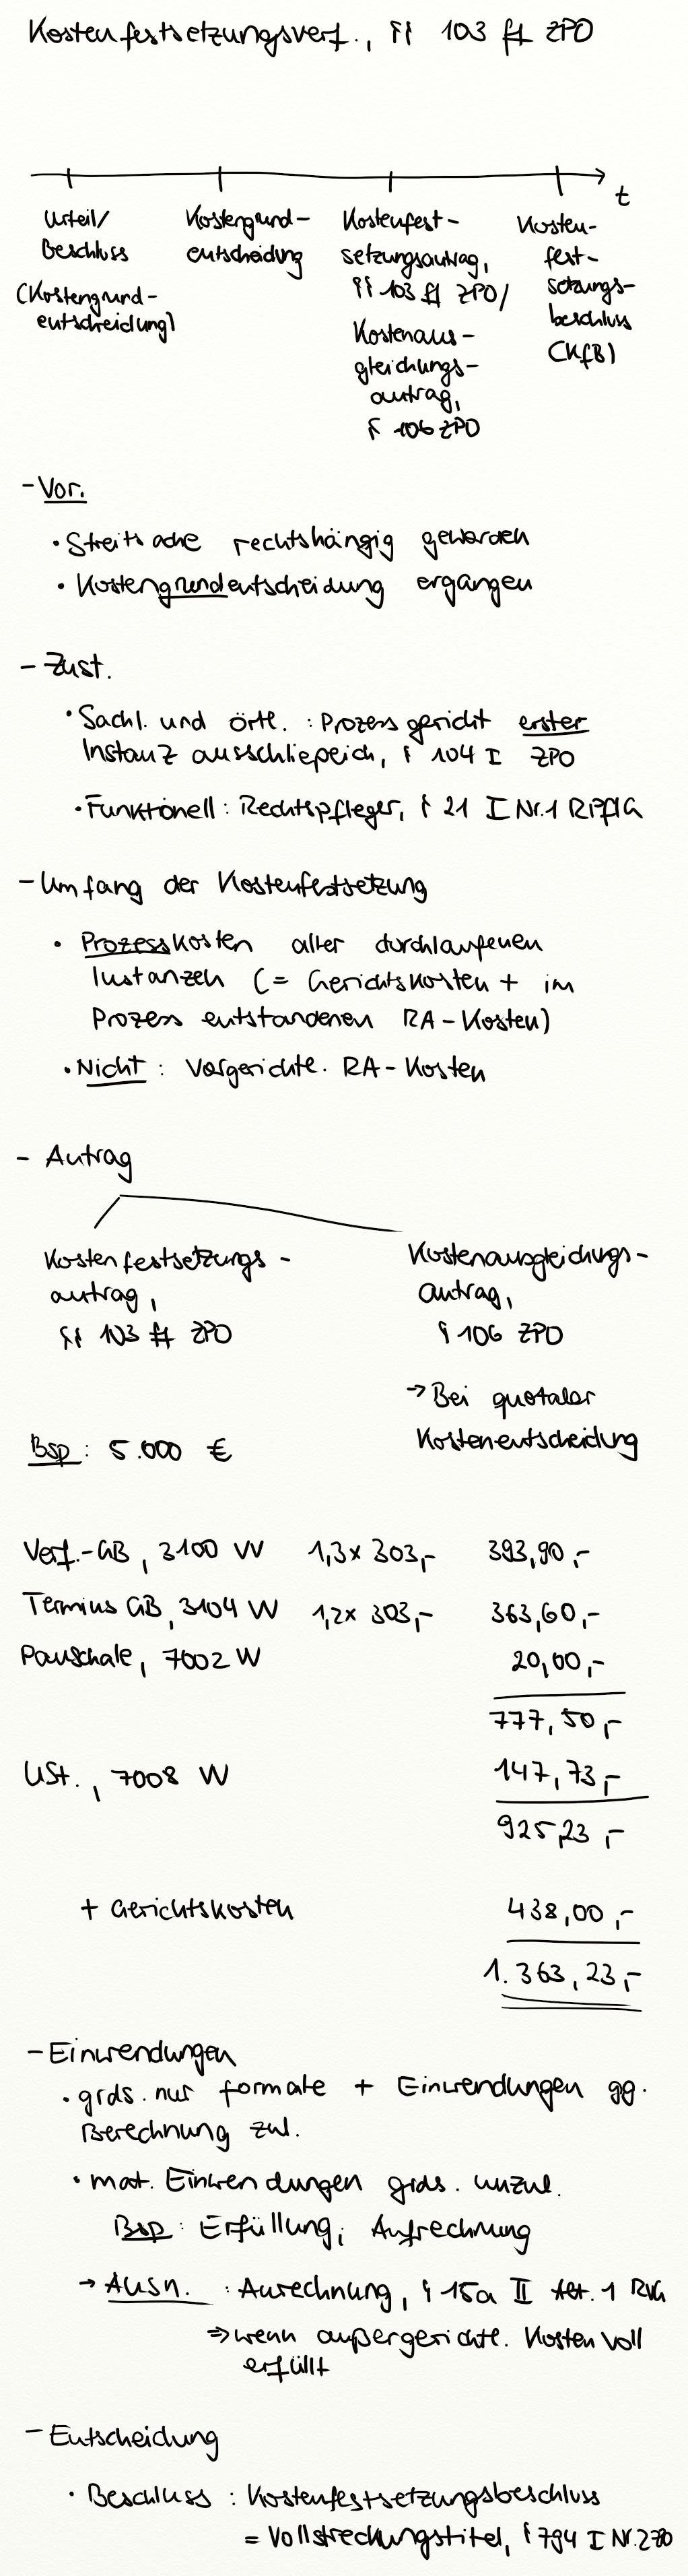 Kostenfestsetzungsverf., §§ 103 ff ZPO
t
Urteil/
Beschluss
(Kostengrund-
entscheidung)
Kostengrund-
entscheidung
Kostenfest-
setzungsantrag,
§§ 103 ff ZPO/
Kostenaus-
gleichungs-
antrag,
§ 106 ZPO
Kosten-
fest-
setzungs-
beschluss
(KfB)
- Vor.
• Streitsache rechtshängig geworden
• Kostengrundentscheidung ergangen
- Zust.
• Sachl. und örtl. : Prozessgericht erster
Instanz ausschließlich, § 104 I ZPO
• Funktionell : Rechtspfleger, § 21 I Nr. 1 RPflG
- Umfang der Kostenfestsetzung
• Prozesskosten aller durchlaufenen
Instanzen (= Gerichtskosten + im
Prozess entstandenen RA-Kosten)
• Nicht : Vorgerichtl. RA-Kosten
- Antrag
Kostenfestsetzungs-
antrag,
§§ 103 ff ZPO
Kostenausgleichungs-
antrag,
§ 106 ZPO
→ Bei quotaler
Kostenentscheidung
Bsp : 5.000 €
Verf.-GB, 3100 VV 1,3 x 303,- 393,90,-
Termins GB, 3104 VV 1,2 x 303,- 363,60,-
Pauschale, 7002 VV 20,00,-
777,50,-
USt., 7008 VV 147,73,-
925,23,-
+ Gerichtskosten 438,00,-
1.363,23,-
- Einwendungen
• grds. nur formale + Einwendungen gg.
Berechnung zul.
• mat. Einwendungen grds. unzul.
Bsp : Erfüllung, Aufrechnung
→ Ausn. : Anrechnung, § 15a II Alt. 1 RVG
⇒ wenn außergerichtl. Kosten voll
erfüllt
- Entscheidung
• Beschluss : Kostenfestsetzungsbeschluss
= Vollstreckungstitel, § 794 I Nr. 2 ZPO